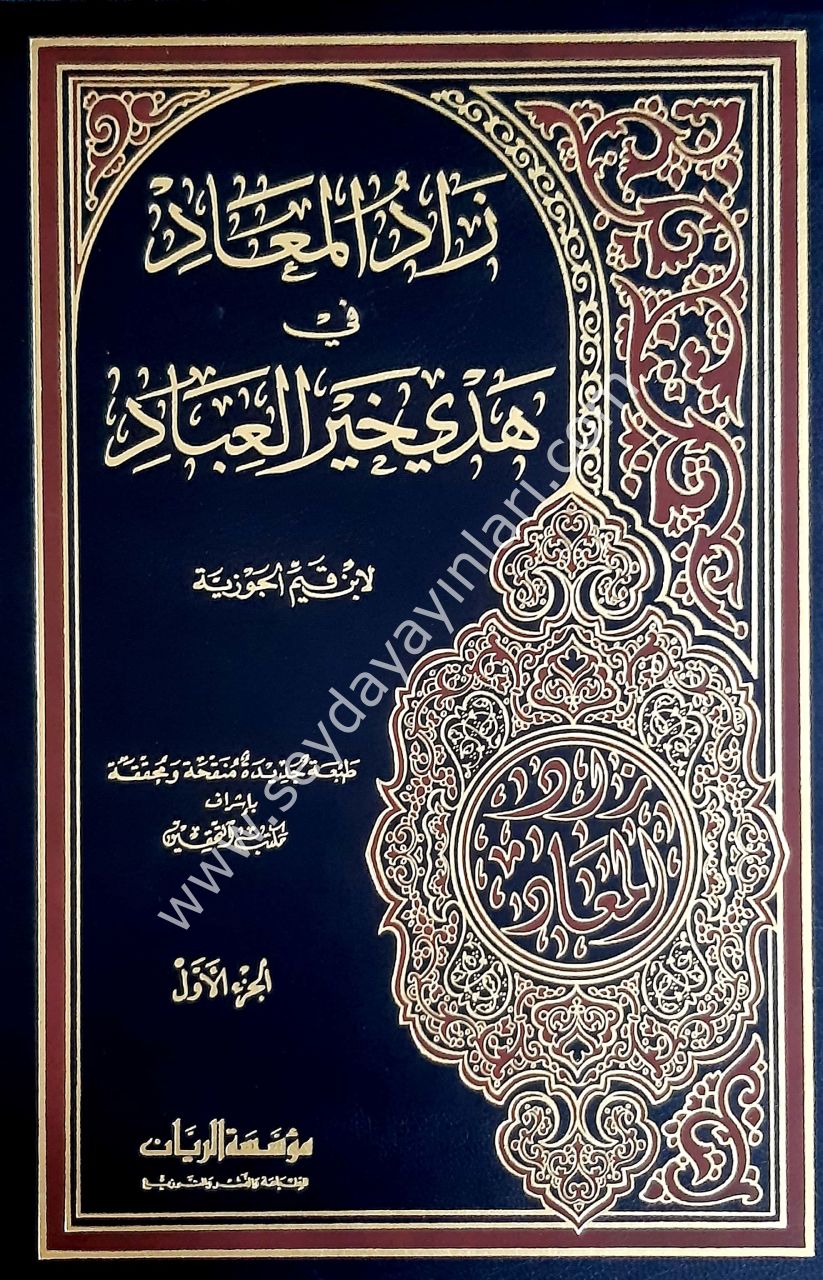 زَادُ المَعَادِ
في
هَدْيِ خَيْرِ العِبَادِ
لابن قيم الجوزية
طبعة جديدة منقحة ومحققة
بإشراف
مكتب التحقيق
الجزء الأول
زاد
المعاد
مؤسسة الريان
للطباعة والنشر والتوزيع
www.seydayayinlari.com